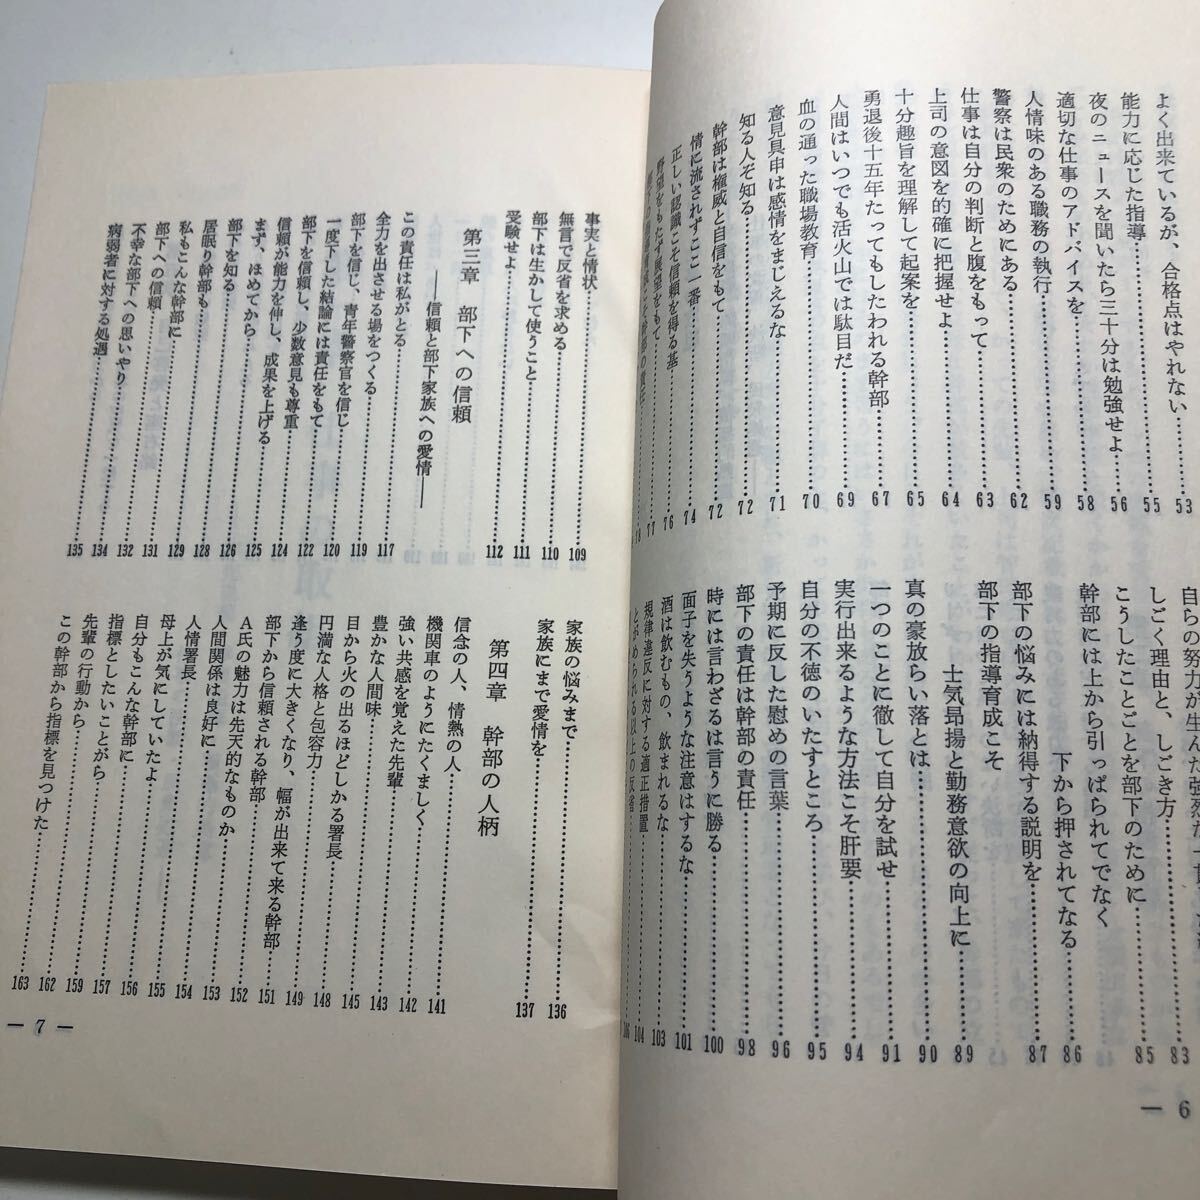 よく出来ているが、合格点はやれない……53
能力に応じた指導……55
夜のニュースを聞いたら三十分は勉強せよ……56
適切な仕事のアドバイスを……58
人情味のある職務の執行……59
警察は民衆のためにある……62
仕事は自分の判断と腹をもって……63
上司の意図を的確に把握せよ……64
十分趣旨を理解して起案を……65
勇退後十五年たってもしたわれる幹部……67
人間はいつでも活火山では駄目だ……69
血の通った職場教育……70
意見具申は感情をまじえるな……71
知る人ぞ知る……72
幹部は権威と自信をもて……72
情に流されずここ一番……74
正しい認識こそ信頼を得る基……76
野望をもたず展望をもて……77
78
自らの努力が生んだ強烈な
しごく理由と、しごき方……83
こうしたことごとを部下のために……85
幹部には上から引っぱられてでなく
下から押されてなる……86
部下の悩みには納得する説明を……87
部下の指導育成こそ
士気昂揚と勤務意欲の向上に……89
真の豪放らい落とは……90
一つのことに徹して自分を試せ……91
実行出来るような方法こそ肝要……94
自分の不徳のいたすところ……95
予期に反した慰めの言葉……96
部下の責任は幹部の責任……98
時には言わざるは言うに勝る……100
面子を失うような注意はするな……101
酒は飲むもの、飲まれるな……103
規律違反に対する適正措置……104
とがめられる以上の反省……106
— 6
事実と情状……109
無言で反省を求める……110
部下は生かして使うこと……111
受験せよ……112
第三章　部下への信頼
——信頼と部下家族への愛情——
この責任は私がとる……117
全力を出させる場をつくる……119
部下を信じ、青年警察官を信じ……120
一度下した結論には責任をもて……122
部下を信頼し、少数意見も尊重……124
信頼が能力を伸し、成果を上げる……125
まず、ほめてから……126
部下を知る……128
居眠り幹部も……129
私もこんな幹部に……131
部下への信頼……132
不幸な部下への思いやり……134
病弱者に対する処遇……135
家族の悩みまで……136
家族にまで愛情を……137
第四章　幹部の人柄
信念の人、情熱の人……141
機関車のようにたくましく……142
強い共感を覚えた先輩……143
豊かな人間味……145
目から火の出るほどしかる署長……148
円満な人格と包容力……149
逢う度に大きくなり、幅が出来て来る幹部……151
部下から信頼される幹部……152
A氏の魅力は先天的なものか……153
人間関係は良好に……154
人情署長……155
母上が気にしていたよ……156
自分もこんな幹部に……157
指標としたいことがら……159
先輩の行動から……162
この幹部から指標を見つけた……163
— 7 —